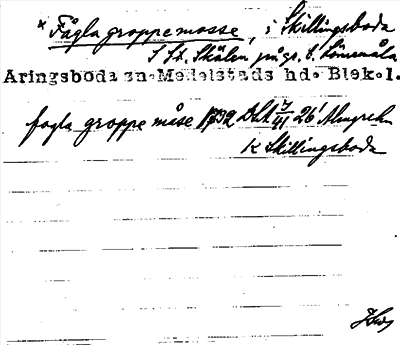 * Fågla groppe mosse, i Skillingsboda
I Sö. Skälen på gr. t. Lönsmåla
Aringsboda sn. Medelstads hd. Blek.l.
fogla groppe måse 1732 Dsk 7/41 26' Almgrehn
K Skillingsboda